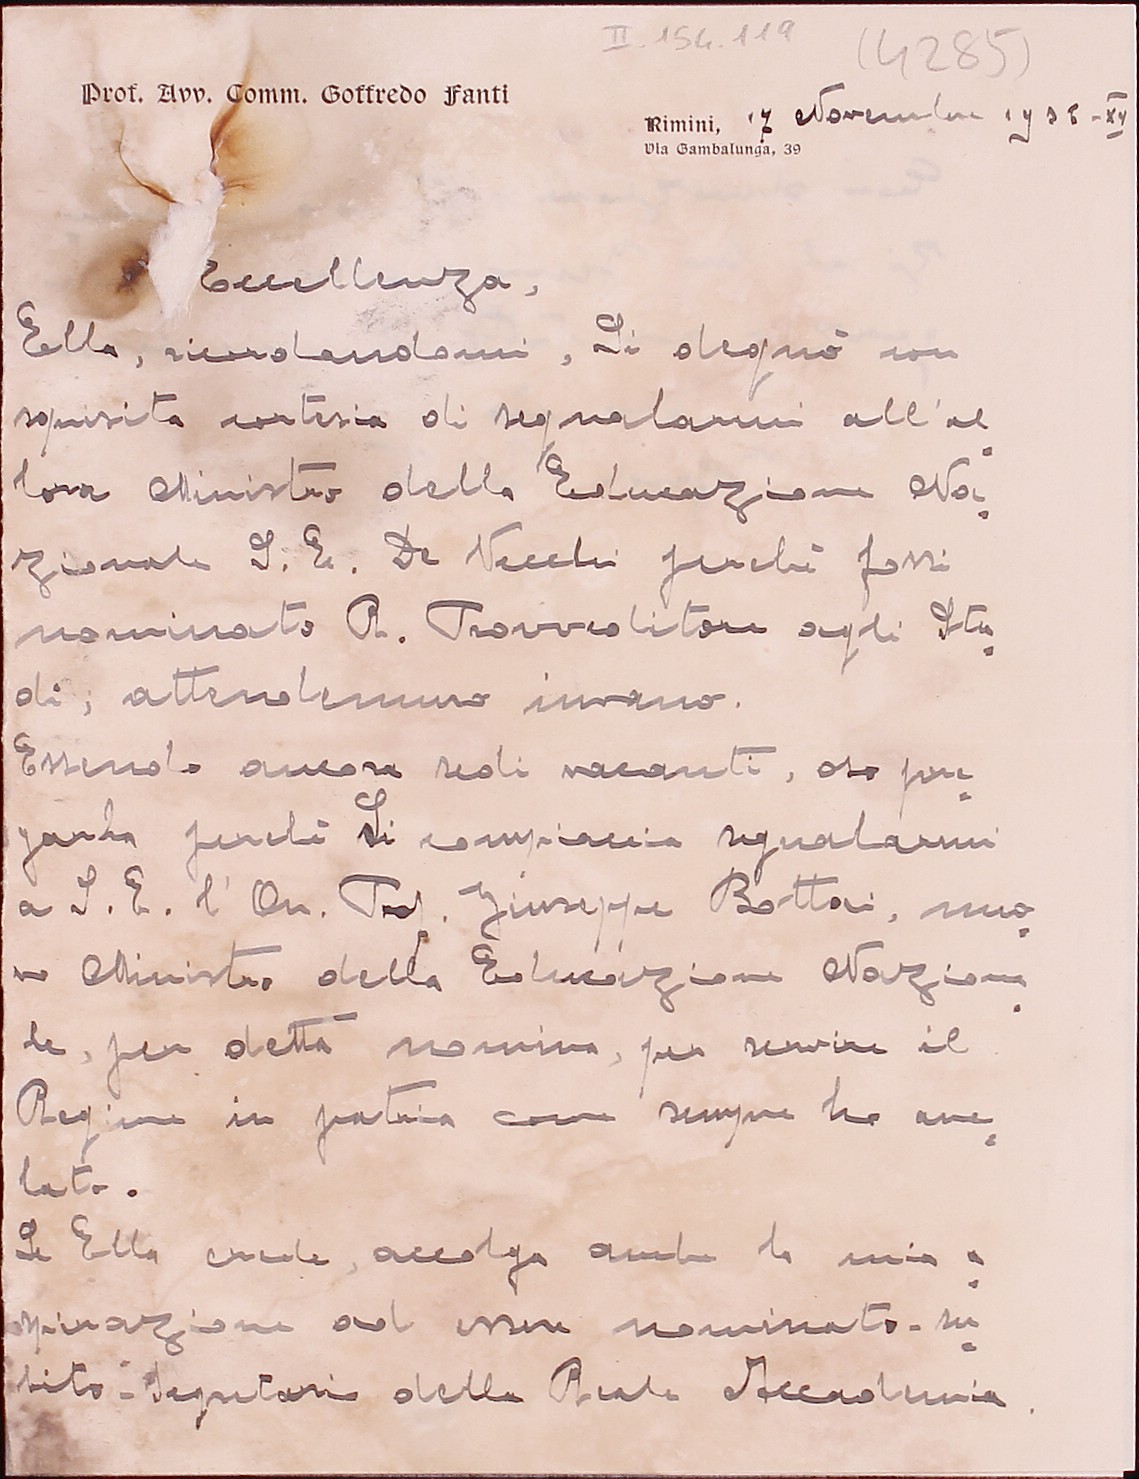 II.154.119
(4285)
Prof. Avv. Comm. Goffredo Fanti
Rimini, 17 Novembre 1936-XV
Via Gambalunga, 39
Eccellenza,
Ella, ricordandomi, Si degnò con
squisita cortesia di segnalarmi all'al-
lora Ministro della Educazione Na-
zionale S. E. De Vecchi perché fossi
nominato R. Provveditore agli Stu-
di; attendemmo invano.
Essendo ancora sedi vacanti, oso pre-
garLa perché Si compiaccia segnalarmi
a S. E. l'On. Prof. Giuseppe Bottai, nuo-
vo Ministro della Educazione Naziona-
le, per detta nomina, per servire il
Regime in patria come sempre ho ane-
lato.
Se Ella crede, accolga anche la mia a-
spirazione ad essere nominato-su-
bito-Segretario della Reale Accademia